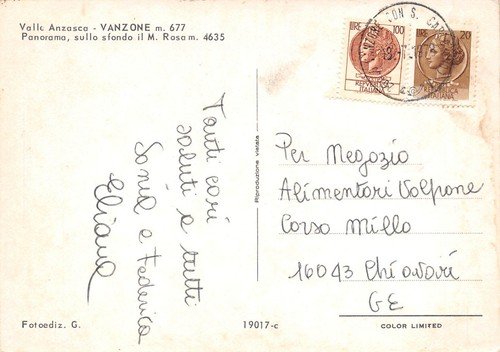 Valle Anzasca - VANZONE m. 677
Panorama, sullo sfondo il M. Rosa m. 4635
LIRE 100
REPUBBLICA
ITALIANA
LIRE 20
REPUBBLICA
ITALIANA
CON S. CA
Tanti cari
saluti a tutti
Sonia e Federica
Eliana
Riproduzione vietata
Per Negozio
Alimentari Volpone
Corso Millo
16043 Chiavari
GE
Fotoediz. G.
19017-c
COLOR LIMITED